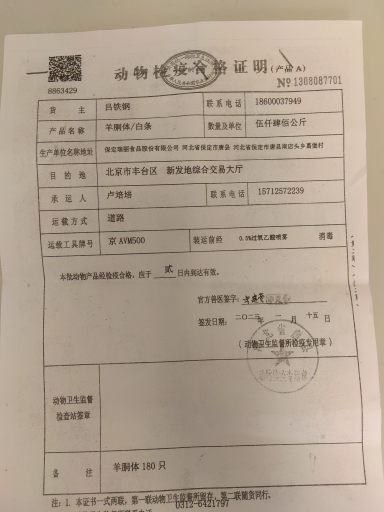 动物检疫合格证明(产品 A)
8863429
№ 1308087701
货 主 吕铁钢 联系电话 18600037949
产品名称 羊胴体/白条 数量及单位 伍仟肆佰公斤
生产单位名称地址 保定瑞丽食品股份有限公司 河北省保定市唐县 河北省保定市唐县南店头乡葛堡村
目 的 地 北京市丰台区 新发地综合交易大厅
承 运 人 卢培培 联系电话 15712572239
运载方式 道路
运载工具牌号 京 AVM500 装运前经 0.5%过氧乙酸喷雾 消毒
本批动物产品经检疫合格，应于 贰 日内到达有效。
官方兽医签字：
签发日期：二〇二三年 一 月 十五 日
（动物卫生监督所检疫专用章）
动物卫生监督
检查站签章
备 注 羊胴体 180 只
注：1. 本证书一式两联，第一联动物卫生监督所留存，第二联随货同行。
0312-6421797